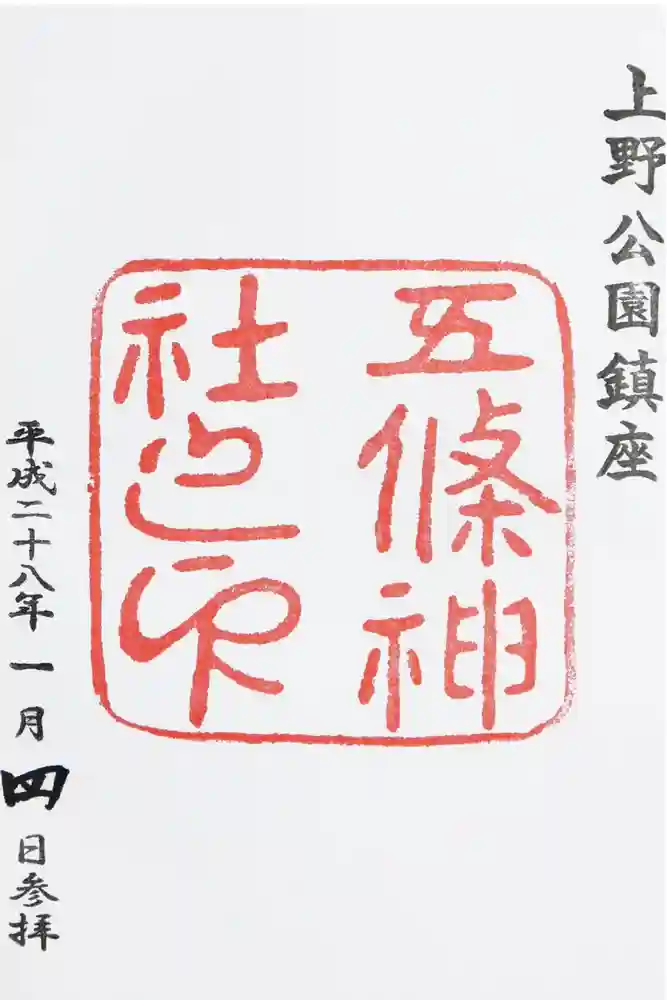 上野公園鎮座
五條神
社之印
平成二十八年一月四日参拝